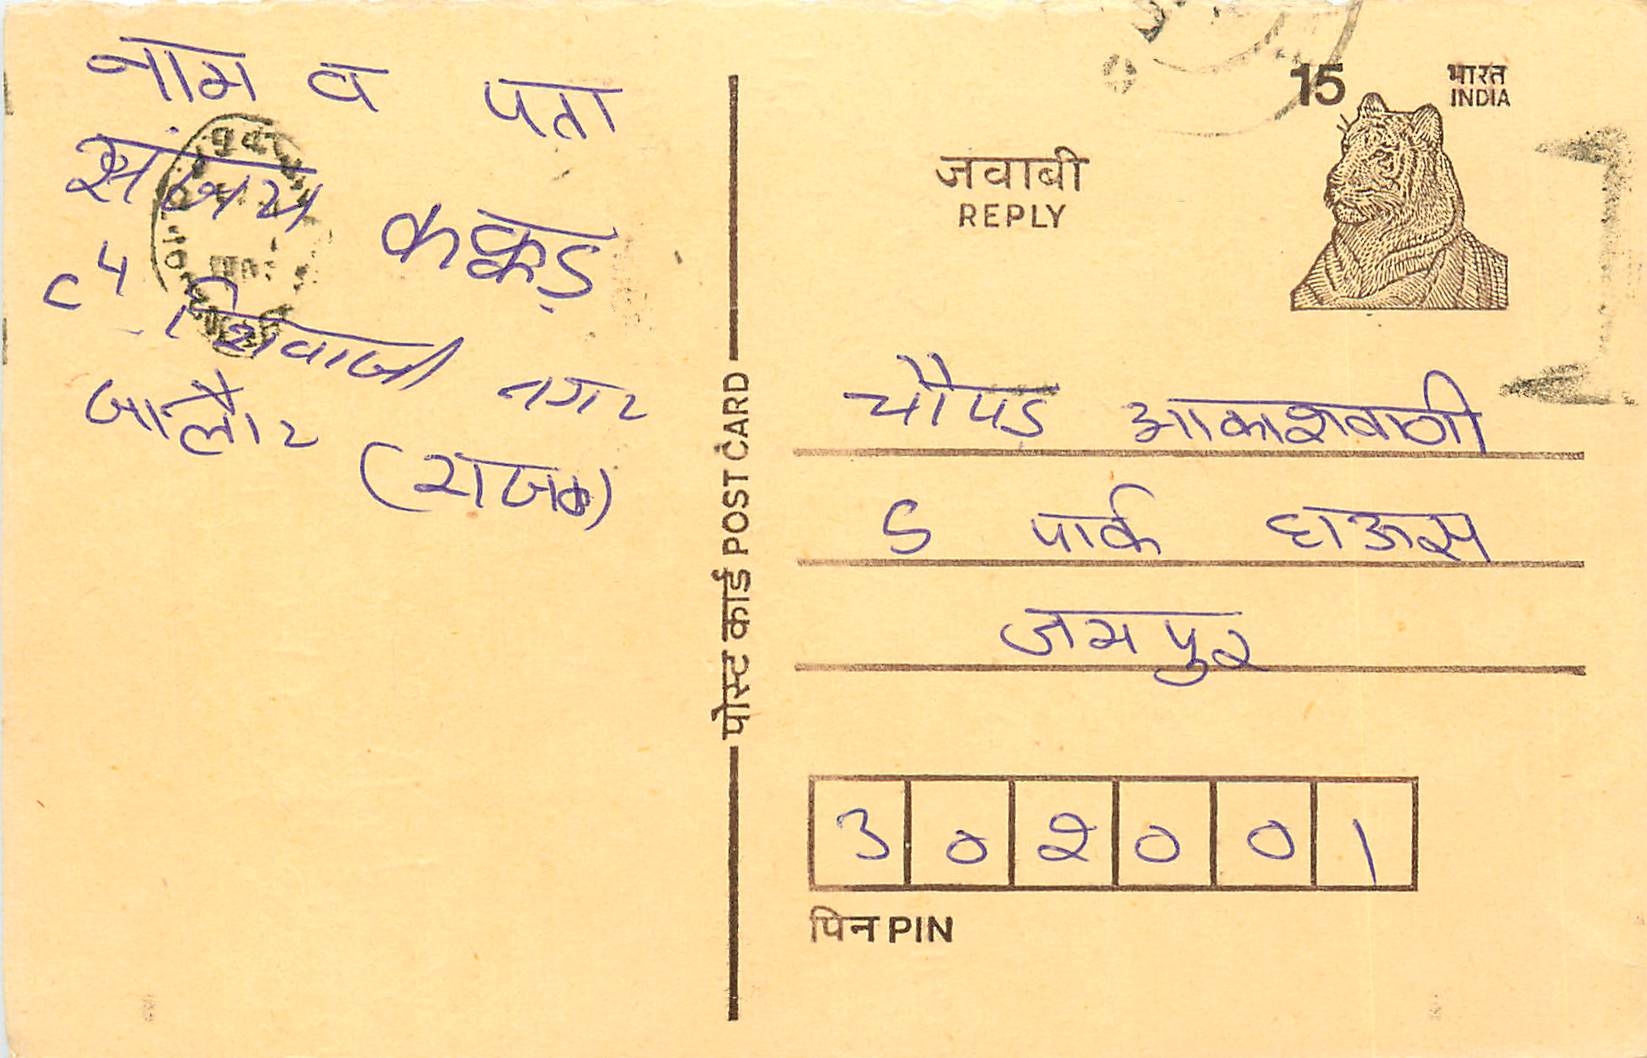 नाम व पता
संजय कक्कड़
C 4 शिवाजी नगर
जालौर (राज०)
पोस्ट कार्ड POST CARD
15
भारत
INDIA
जवाबी
REPLY
चौपड आकाशवाणी
5 पार्क हाऊस
जयपुर
302001
पिन PIN